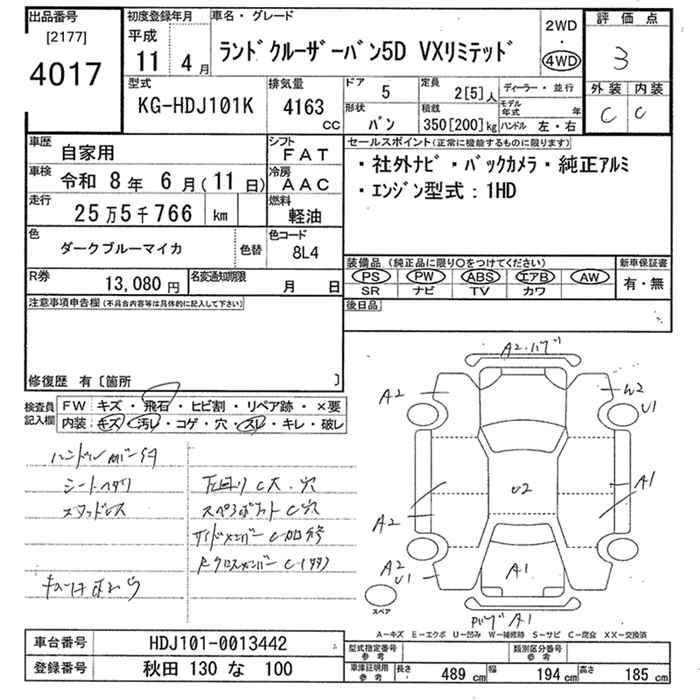 出品番号
[2177]
4017
初度登録年月
平成
11 4月
車名・グレード
ランドクルーザーバン5D VXリミテッド
2WD
・
4WD
評価点
3
外装 内装
C C
型式
KG-HDJ101K
排気量
4163
CC
ドア
5
定員
2[5]人
形状
バン
積載
350[200]kg
ディーラー・並行
モデル年式 年
ハンドル 左・右
車歴
自家用
シフト
FAT
車検
令和 8年 6月(11日)
冷房
AAC
走行
25万5千766 km
燃料
軽油
色
ダークブルーマイカ
色替
色コード
8L4
R券
13,080円
名変通知期限
月 日
セールスポイント(正常に機能するものに限ります)
・社外ナビ・バックカメラ・純正アルミ
・エンジン型式:1HD
装備品 (純正品に限り○をつけてください)
PS PW ABS エアB AW
SR ナビ TV カワ
新車保証書
有・無
後日品
注意事項申告欄(不具合内容等は具体的に記入して下さい)
修復歴 有〔箇所 〕
検査員記入欄
FW キズ・飛石・ヒビ割・リペア跡・×要
内装 キズ・汚レ・コゲ・穴・スレ・キレ・破レ
シートヘタリ
スタッドレス
下回り C大・穴
C穴
サイドメンバー C
Rクロスメンバー C
A2・ハゲ
A2
W2
U1
A1
U2
A2
A2
U1
A1
A1
スペア
A-キズ E-エクボ U-凹み W-補修跡 S-サビ C-腐食 XX-交換済
車台番号
HDJ101-0013442
登録番号
秋田 130 な 100
型式指定番号
参考
類別区分番号
参考
車庫証明用
参考
長さ 489 cm 幅 194 cm 高さ 185 cm